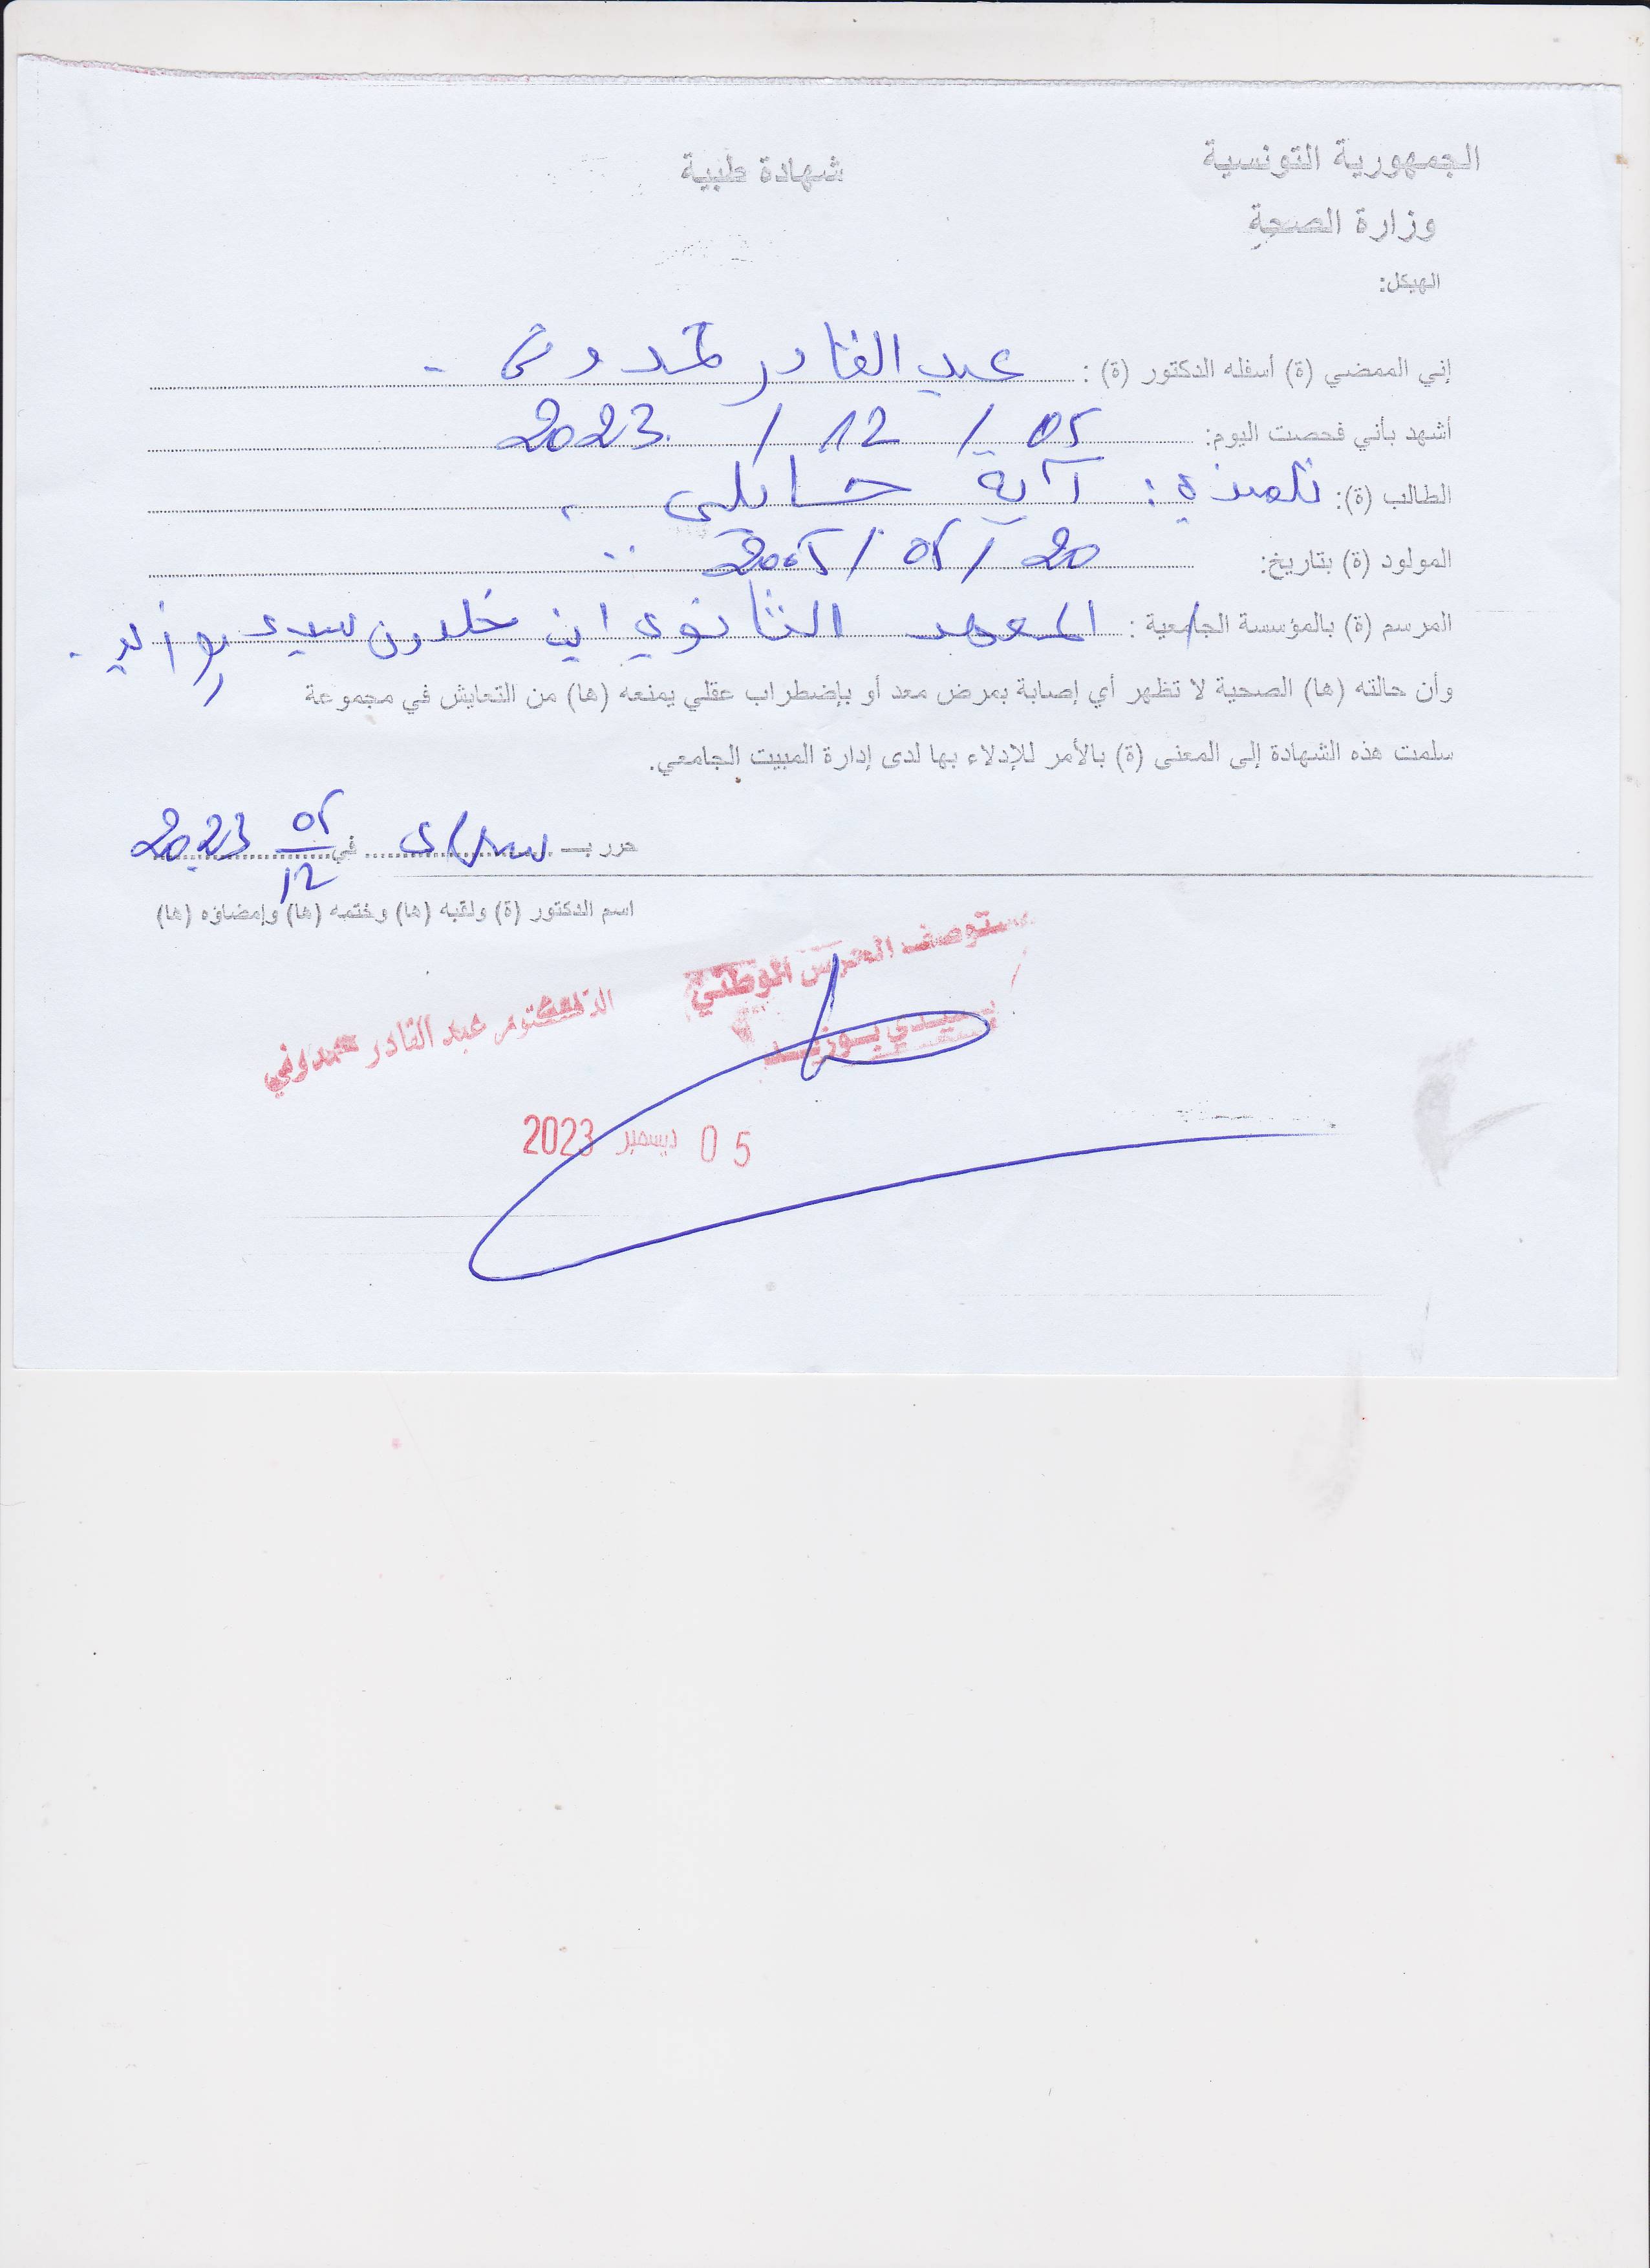 الجمهورية التونسية
شهادة طبية
وزارة الصحة
الهيكل:
إني الممضي (ة) أسفله الدكتور (ة) : عبد القادر حمدوني
أشهد بأني فحصت اليوم: 05 / 12 / 2023
الطالب (ة): تلميذة : آية
المولود (ة) بتاريخ: 20 / 05 / 2005
المرسم (ة) بالمؤسسة الجامعية : المعهد الثانوي ابن خلدون سيدي بوزيد .
وأن حالته (ها) الصحية لا تظهر أي إصابة بمرض معد أو بإضطراب عقلي يمنعه (ها) من التعايش في مجموعة
سلمت هذه الشهادة إلى المعنى (ة) بالأمر للإدلاء بها لدى إدارة المبيت الجامعي.
حرر بـ في 05/12 2023
اسم الدكتور (ة) ولقبه (ها) وختمه (ها) وإمضاؤه (ها)
مستوصف الحرس الوطني
بسيدي بوزيد
الدكتور عبد القادر حمدوني
05 ديسمبر 2023